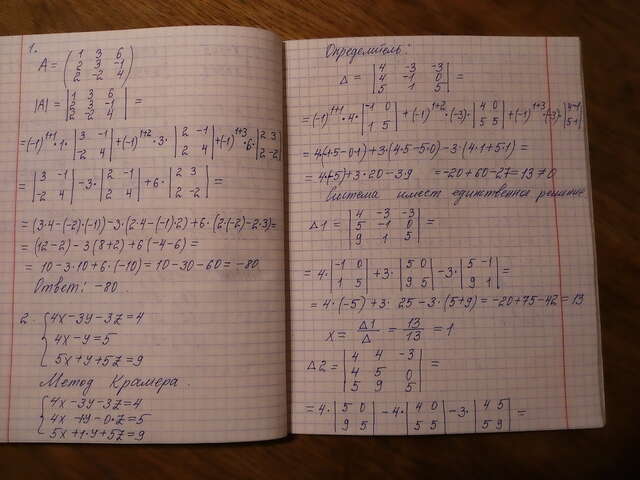 1.
A = ( 1 3 6
2 3 -1
2 -2 4 )
|A| = | 1 3 6
2 3 -1
2 -2 4 | =
=(-1)^1+1 ·1· | 3 -1
-2 4 | +(-1)^1+2 ·3· | 2 -1
2 4 | +(-1)^1+3 ·6· | 2 3
2 -2 |
= | 3 -1
-2 4 | -3· | 2 -1
2 4 | +6· | 2 3
2 -2 | =
= (3·4-(-2)·(-1))-3·(2·4-(-1)·2)+6·(2·(-2)-2·3)=
= (12-2)-3(8+2)+6(-4-6)=
= 10-3·10+6·(-10)=10-30-60=-80
Ответ: -80
2. { 4x-3y-3z=4
4x-y=5
5x+y+5z=9
Метод Крамера.
{ 4x-3y-3z=4
4x-1y-0·z=5
5x+1·y+5z=9
Определитель:
Δ = | 4 -3 -3
4 -1 0
5 1 5 | =
=(-1)^1+1 ·4· | -1 0
1 5 | +(-1)^1+2 ·(-3)· | 4 0
5 5 | +(-1)^1+3 ·(-3)· | 4 -1
5 1 |
= 4(+5-0·1)+3(4·5-5·0)-3·(4·1+5·1)=
= 4(+5)+3·20-3·9 =-20+60-27=13≠0
Система имеет единственное решение
Δ1 = | 4 -3 -3
5 -1 0
9 1 5 | =
= 4· | -1 0
1 5 | +3· | 5 0
9 5 | -3· | 5 -1
9 1 | =
= 4·(-5)+3·25-3·(5+9)=-20+75-42=13
x = Δ1/Δ = 13/13 = 1
Δ2 = | 4 4 -3
4 5 0
5 9 5 | =
= 4· | 5 0
9 5 | -4· | 4 0
5 5 | -3· | 4 5
5 9 | =